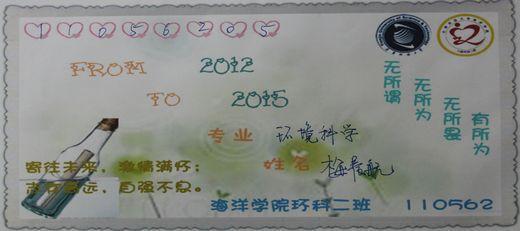 11056205
FROM 2012
TO 2015
无所谓
无所为
无所畏
有所为
专业 环境科学
姓名
寄往未来，激情满怀；
志存高远，自强不息。
海洋学院环科二班 110562